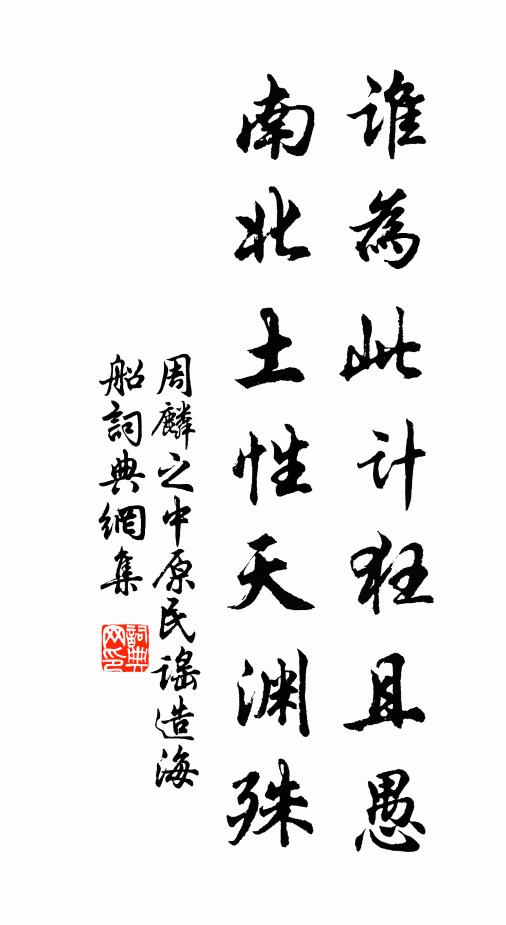 誰為此计狂且愚
南北土性天渊殊
周麟之中原民谣造海
船詞典網集
詞典网印